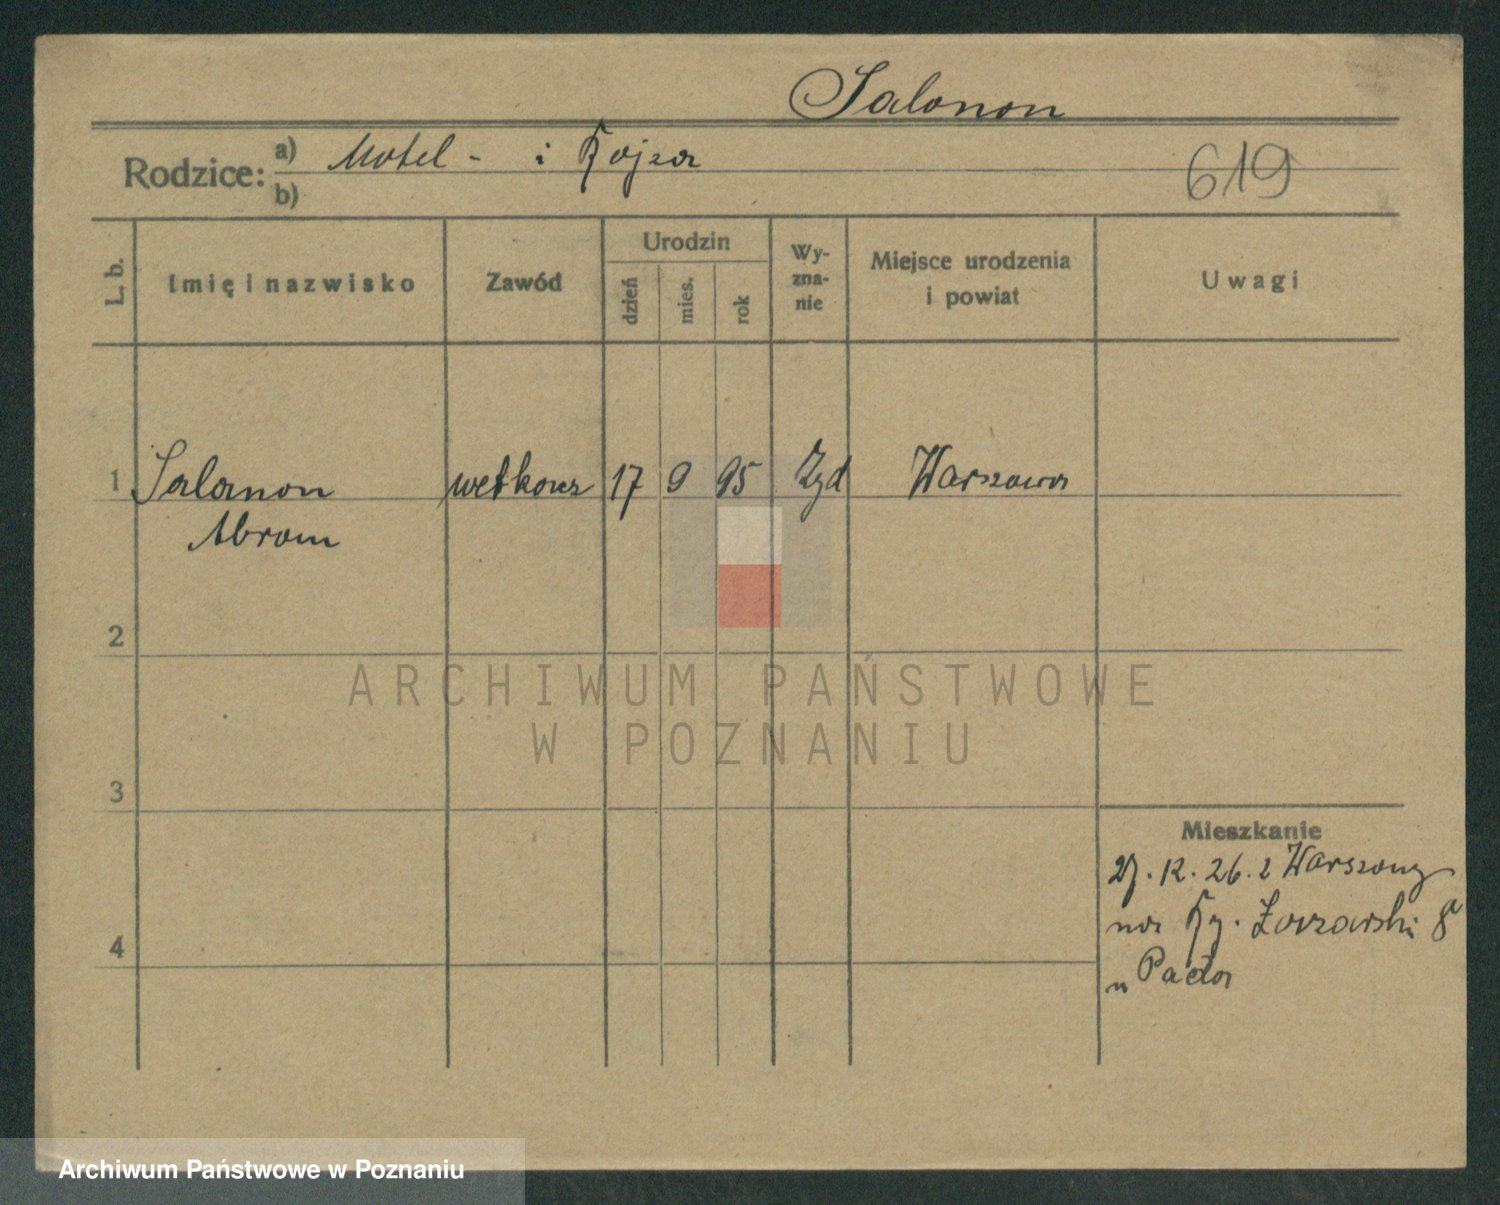 Salomon
Rodzice: a) Motel - i Fajza
b)
619
L. b.
Imię i nazwisko
Zawód
Urodzin
dzień
mies.
rok
Wy-
zna-
nie
Miejsce urodzenia
i powiat
Uwagi
1 Salomon 17 9 95 Żyd Warszawa
Abram
2
3
4
Mieszkanie
27. 12. 26. z Warszawy
na Ry. Łazarski 8a
u
ARCHIWUM PAŃSTWOWE
W POZNANIU
Archiwum Państwowe w Poznaniu